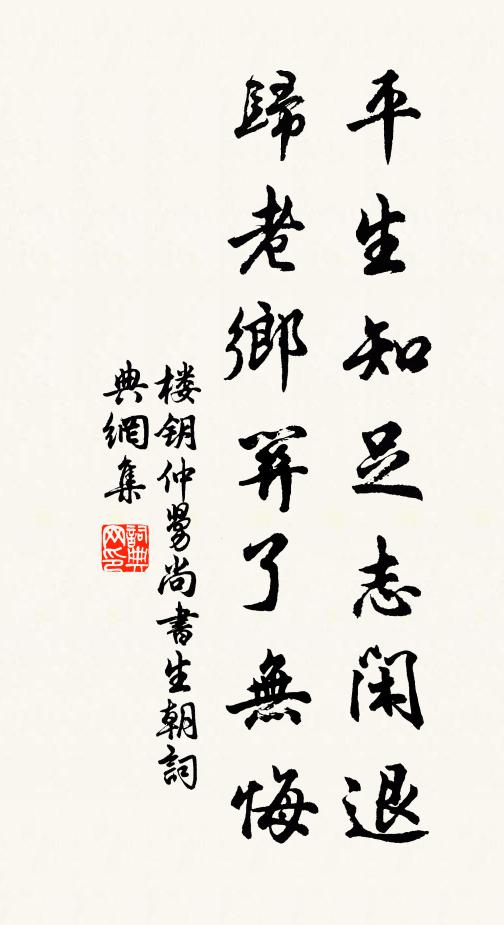 平生知足志閑退
歸老鄉筭了無悔
楼钥仲舅尚書生朝詞
典網集
詞典
网印